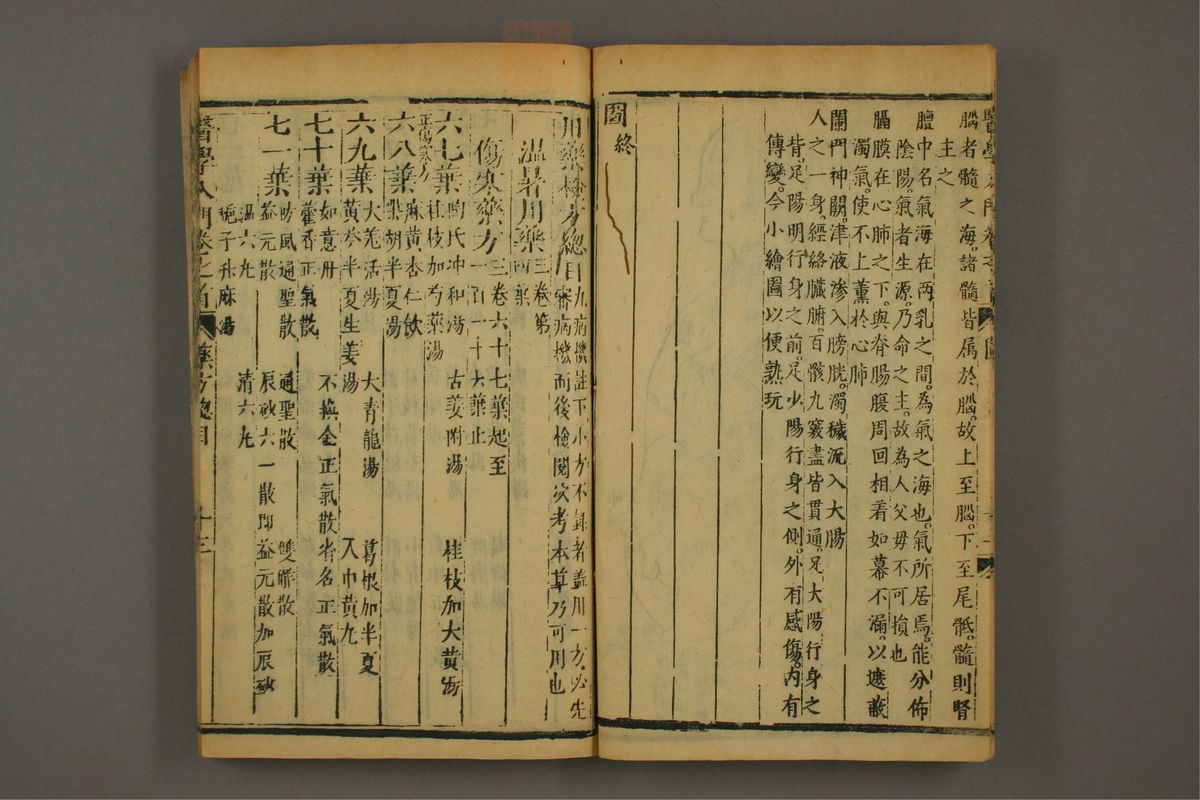 腦者髓之海諸髓皆属於腦故上至腦下至尾骶髓則腎
主之
膻中名氣海在两乳之間為氣之海也氣所居焉能分佈
陰陽氣者生源乃命之主故為人父母不可損也
膈膜在心肺之下與脊腸腹周回相着如幕不漏以遮蔽
濁氣使不上薰於心肺
闌門神闕津液渗入膀胱濁穢流入大腸
人之一身經絡臓腑百骸九竅盡皆貫通足太陽行身之
背足陽明行身之前足少陽行身之側外有感傷内有
傳變今小繪圖以便熟玩
圖終
用藥檢方總目凡病機註下小方不録者盖用一方必先
審病機而後檢閱次考本草乃可用也
温暑用藥三卷第
傷寒藥方三卷六十七葉起至
一百一十六葉止
六七葉
正傷寒方
陶氏冲和湯 古姜附湯 桂枝加大黄湯
桂枝加芍藥湯
六八葉
麻黄杏仁飲
柴胡半夏湯
六九葉
大羗活湯 大青龍湯 葛根加半夏
黄芩半夏生姜湯 入中黄丸
七十葉
如意丹 不換金正氣散者名正氣散
藿香正氣散
七一葉
防風通聖散 通聖散 雙解散
益元散 辰砂六一散即益元散加辰砂
温六丸 清六丸
梔子升麻湯
醫學入門卷之首 藥方總目 十三